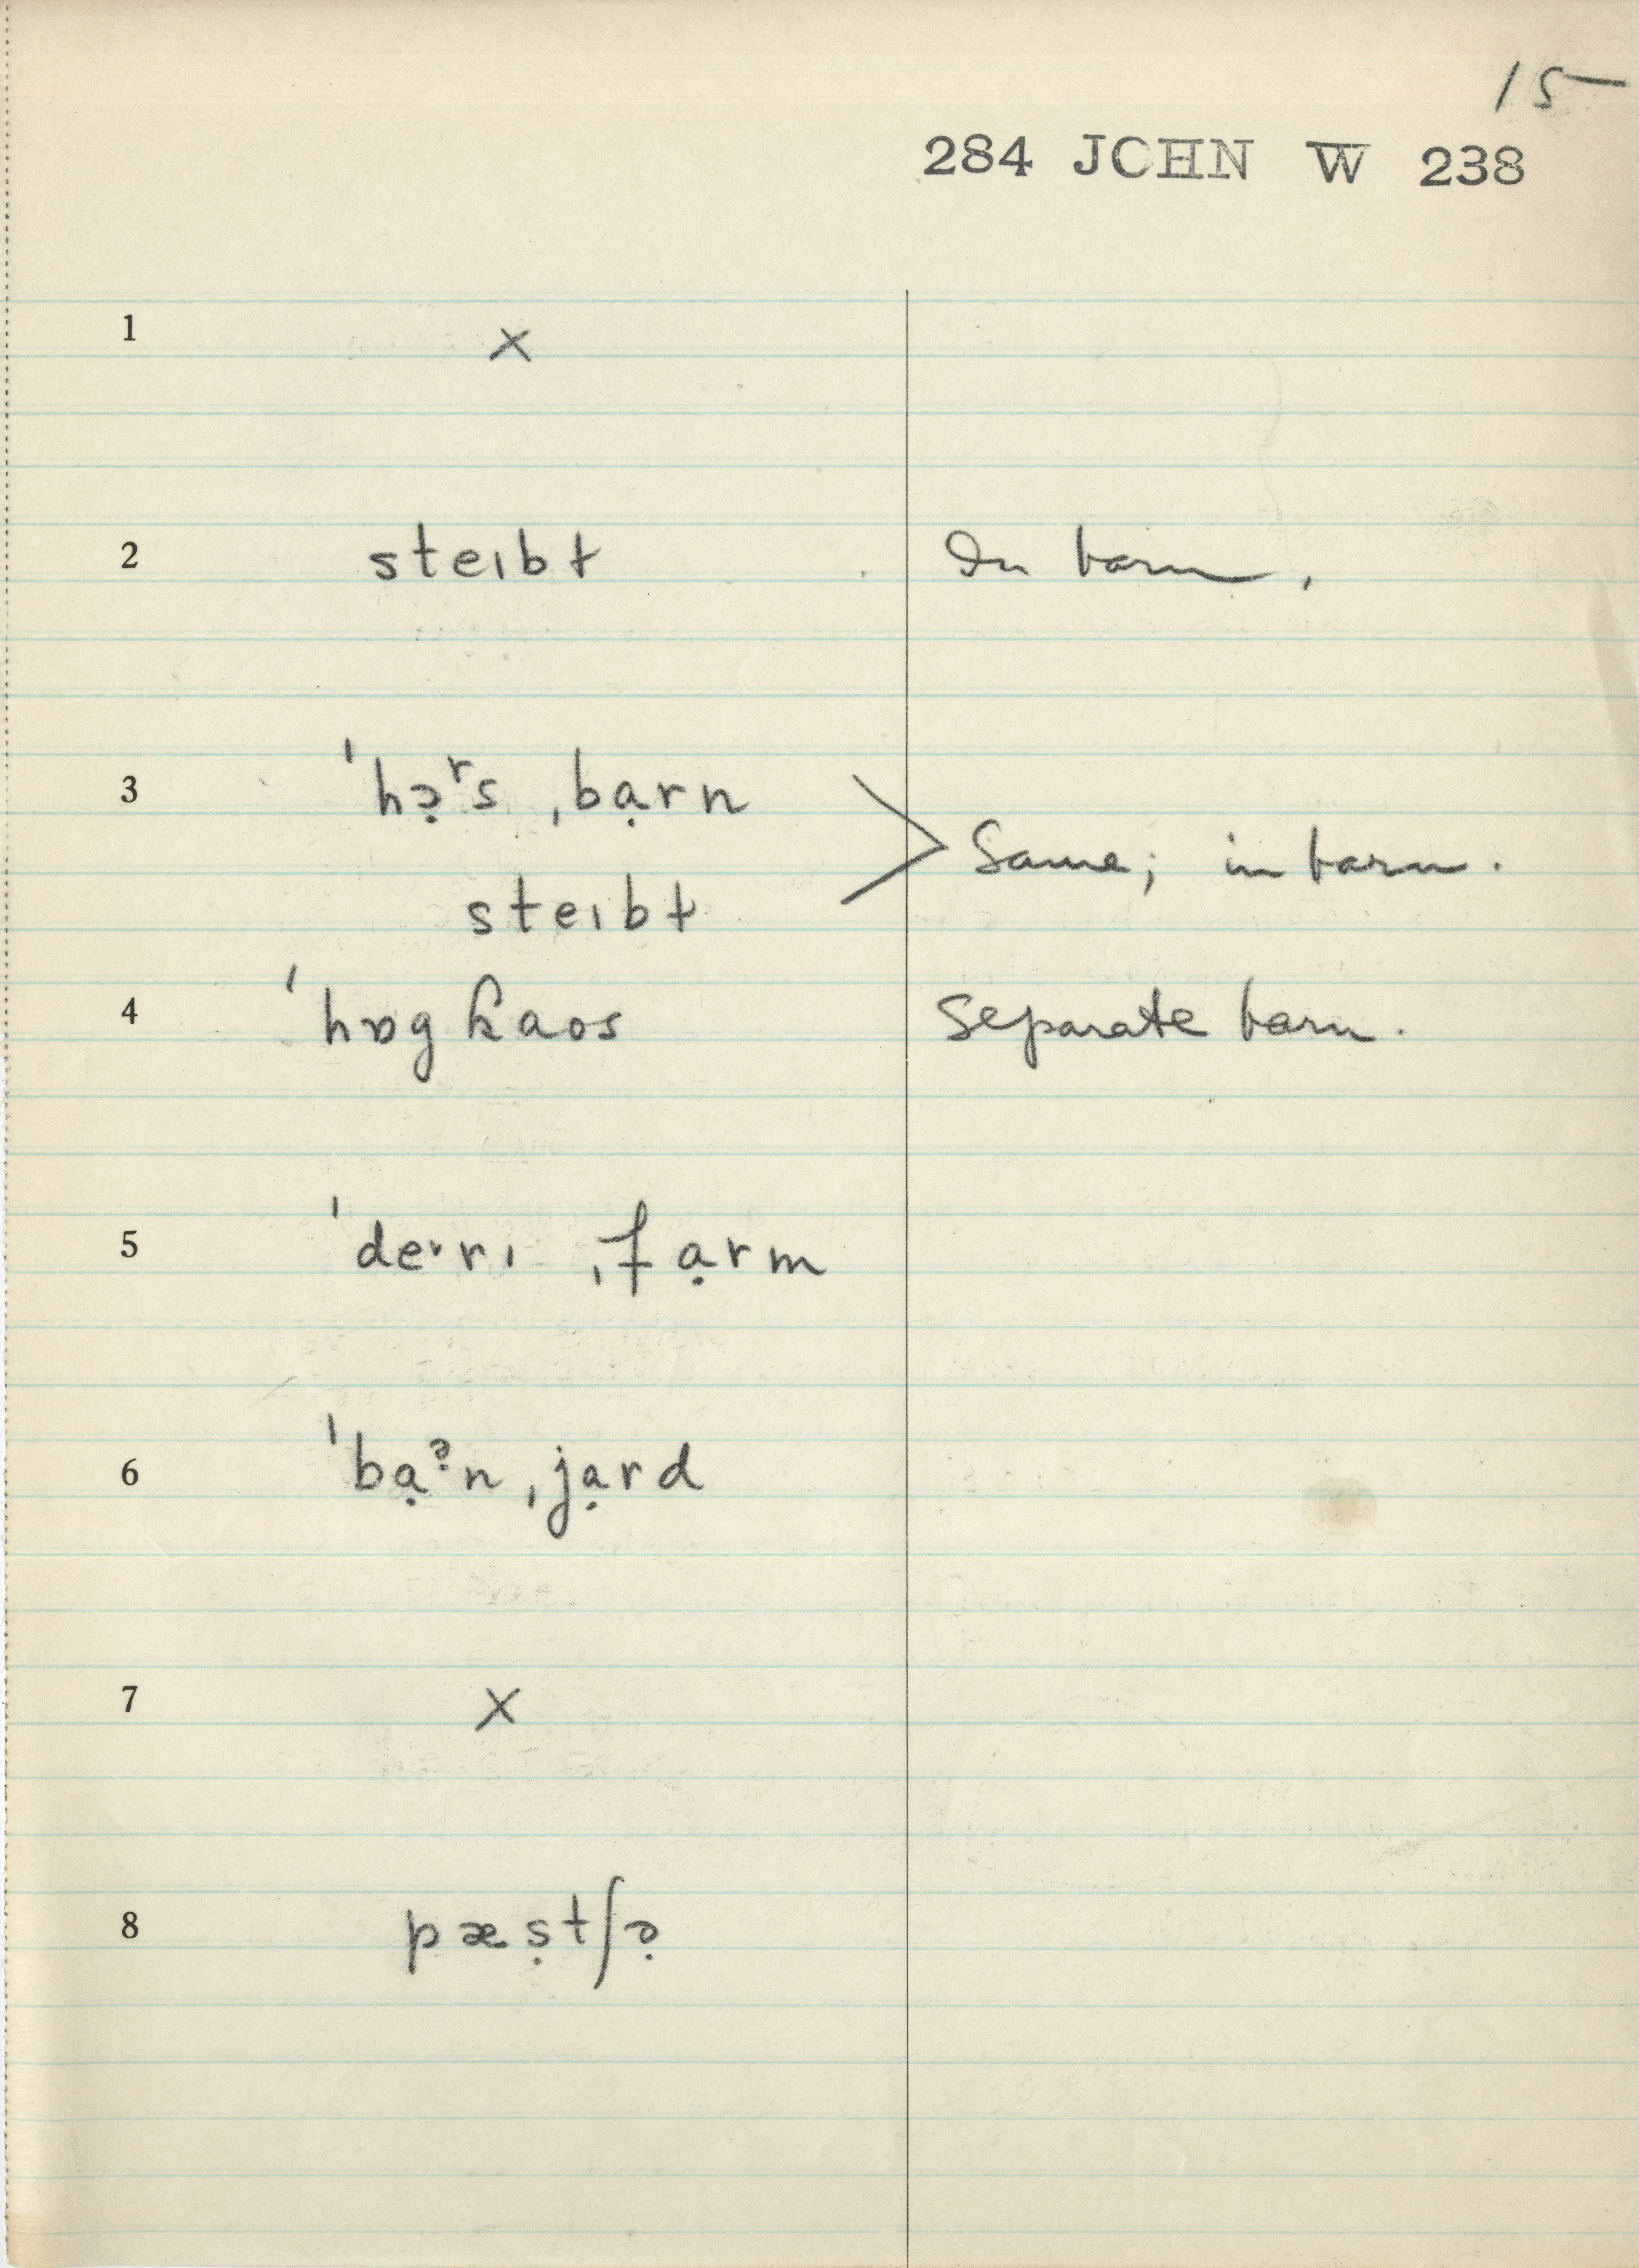 15
284 JOHN W 238
1 ×
2 steɪbɫ In barn.
3 ˈhɔ̣ʳs ˌbạrn
Same; in barn.
steɪbɫ
4 ˈhɒg ɦaos Separate barn.
5 ˈdeᵛrɪ ˌfạrm
6 ˈbạᵊ̣n ˌjạrd
7 ×
8 pæṣtʃə̣